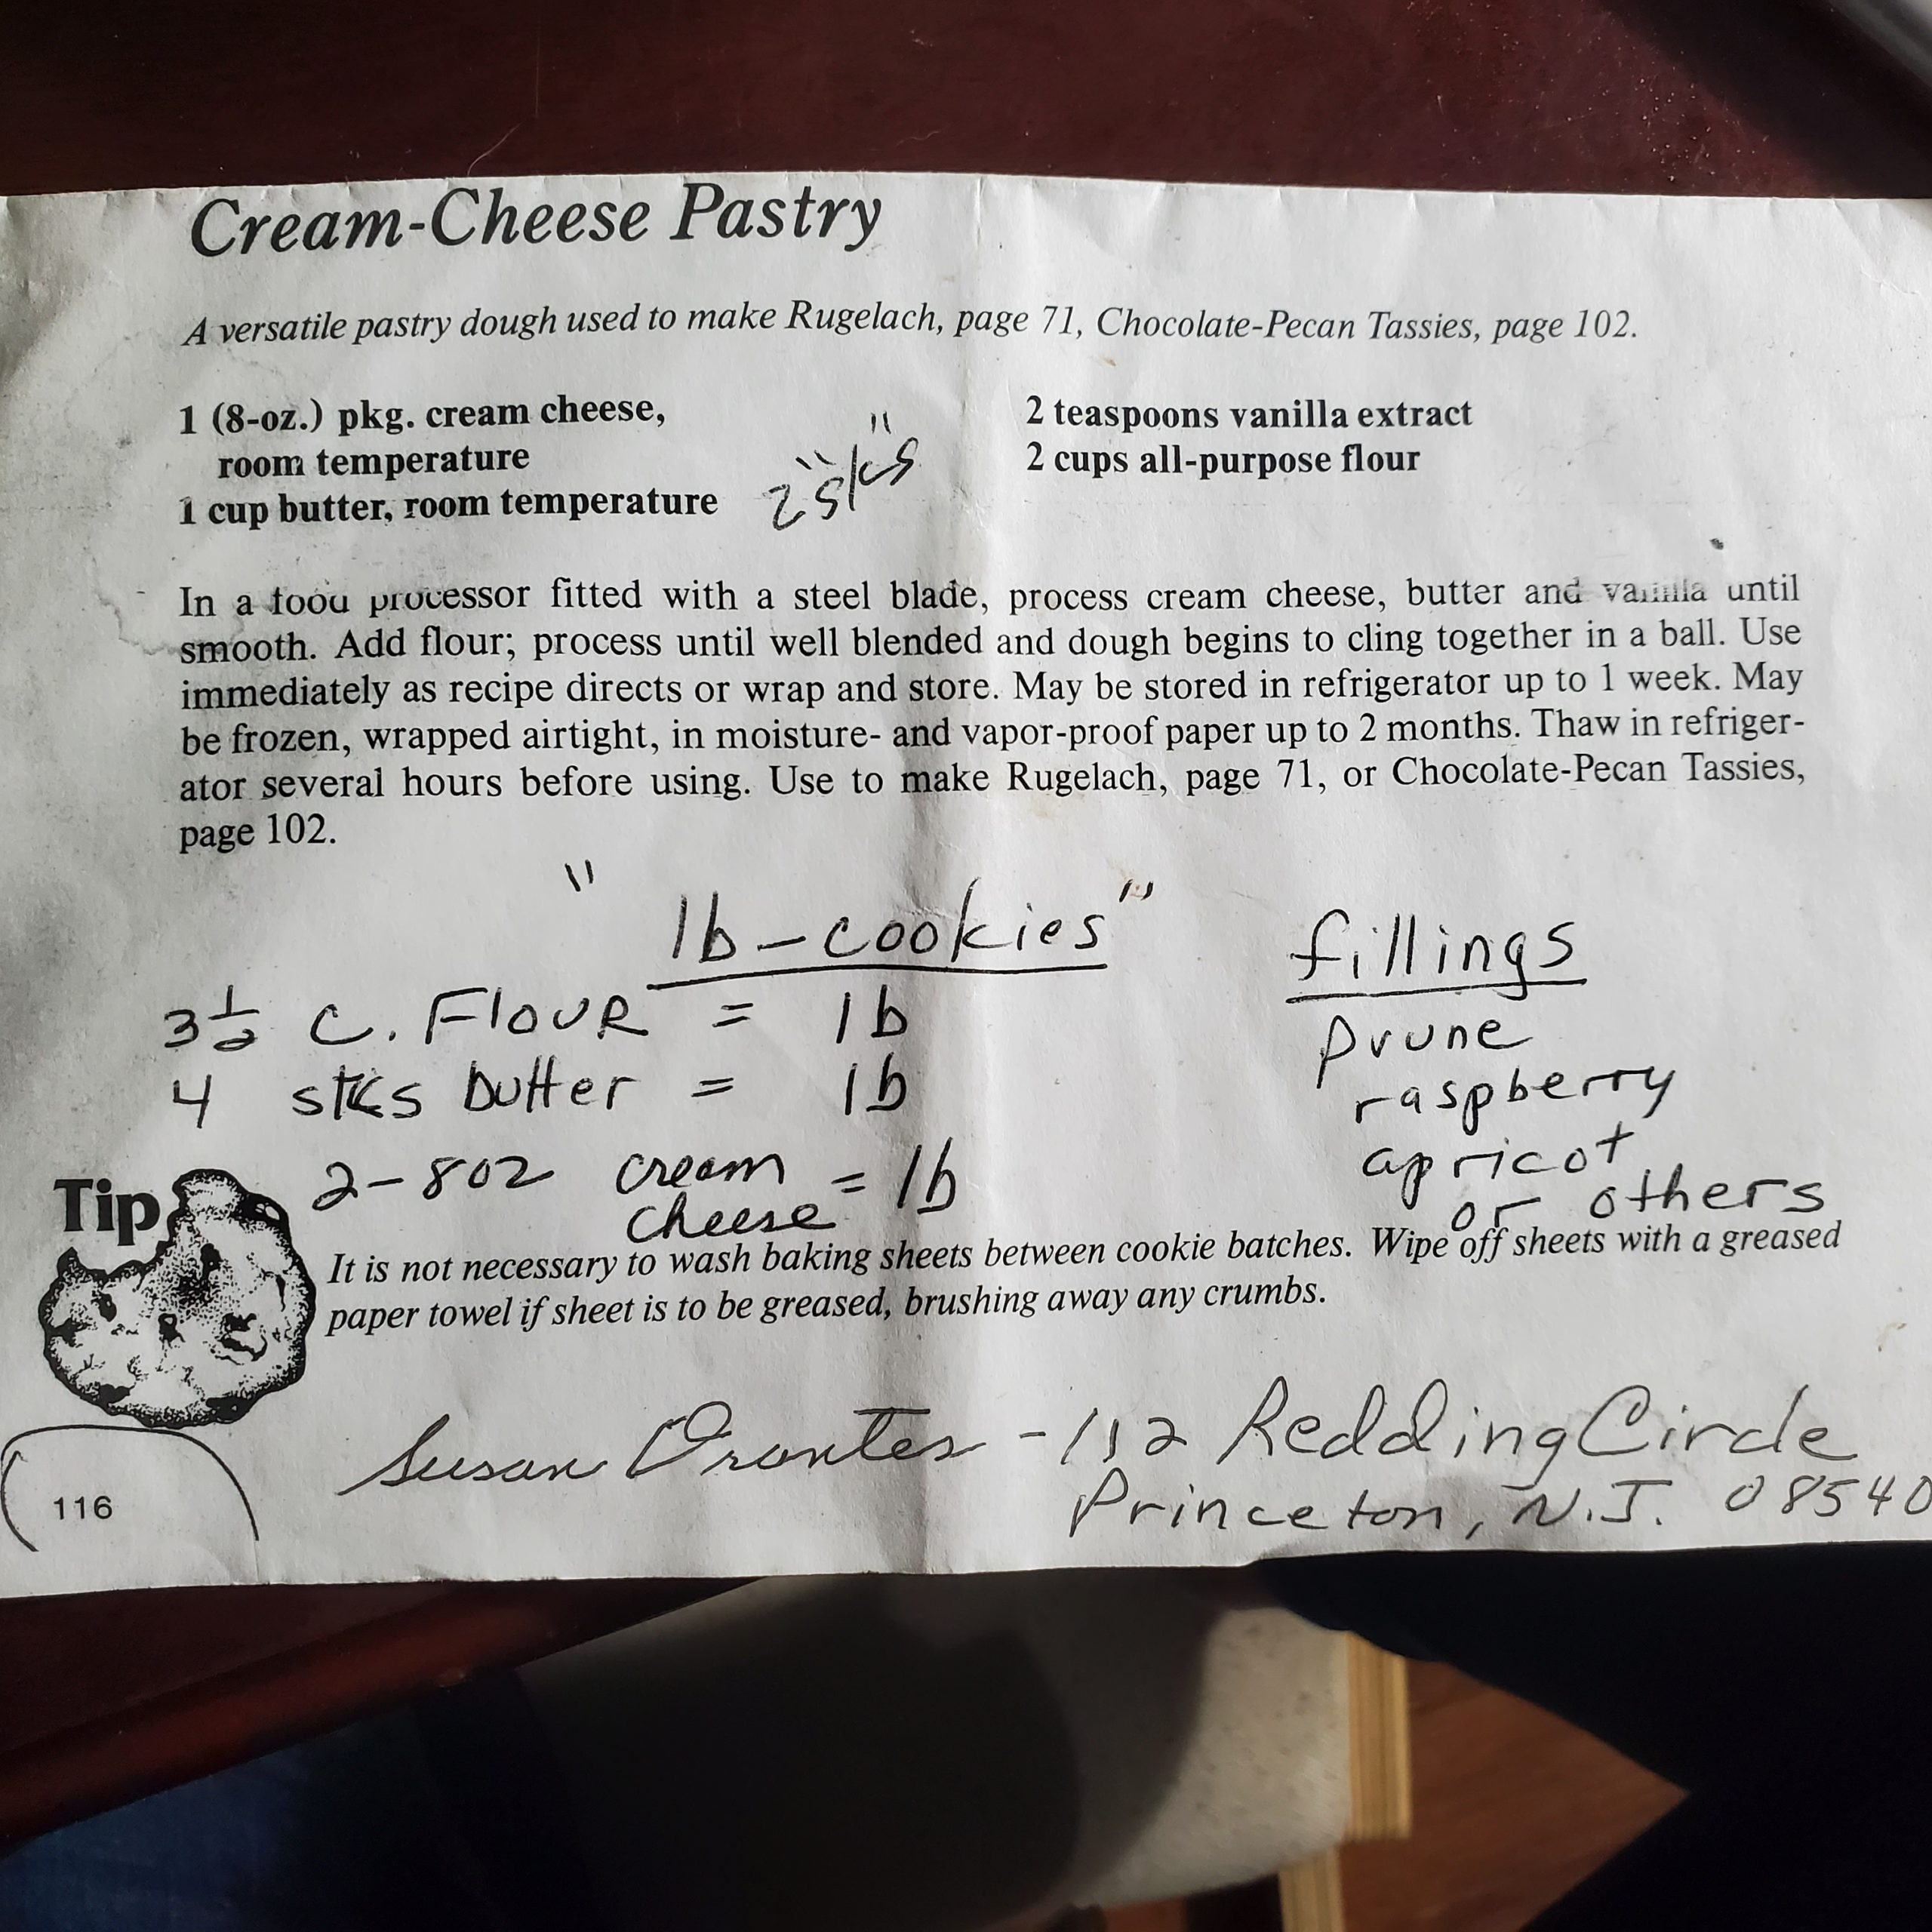 Cream-Cheese Pastry
A versatile pastry dough used to make Rugelach, page 71, Chocolate-Pecan Tassies, page 102.
1 (8-oz.) pkg. cream cheese,
room temperature
1 cup butter, room temperature
2 "stks"
2 teaspoons vanilla extract
2 cups all-purpose flour
In a food processor fitted with a steel blade, process cream cheese, butter and vanilla until
smooth. Add flour; process until well blended and dough begins to cling together in a ball. Use
immediately as recipe directs or wrap and store. May be stored in refrigerator up to 1 week. May
be frozen, wrapped airtight, in moisture- and vapor-proof paper up to 2 months. Thaw in refriger-
ator several hours before using. Use to make Rugelach, page 71, or Chocolate-Pecan Tassies,
page 102.
"lb-cookies"
3 1/2 c. Flour = 1b
4 stks butter = 1b
2-8oz cream = 1b
cheese
fillings
prune
raspberry
apricot
or others
Tip
It is not necessary to wash baking sheets between cookie batches. Wipe off sheets with a greased
paper towel if sheet is to be greased, brushing away any crumbs.
Susan Orantes - 112 Redding Circle
Princeton, N.J. 08540
116